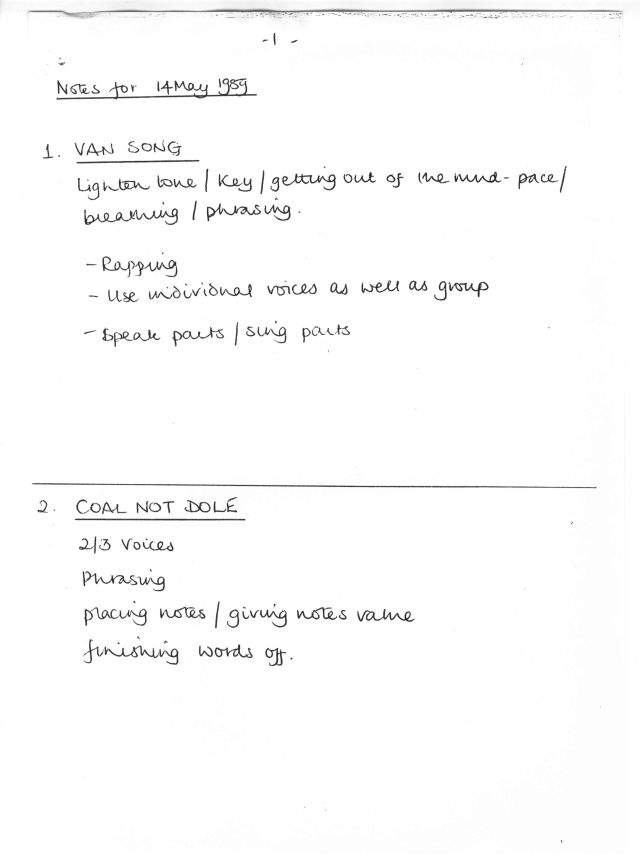 -1-
Notes for 14 May 1989
1. VAN SONG
Lighten tone / Key / getting out of the mud - pace /
breathing / phrasing.
- Rapping
- Use individual voices as well as group
- Speak parts / sing parts
2. COAL NOT DOLE
2/3 Voices
Phrasing
placing notes / giving notes value
finishing words off.